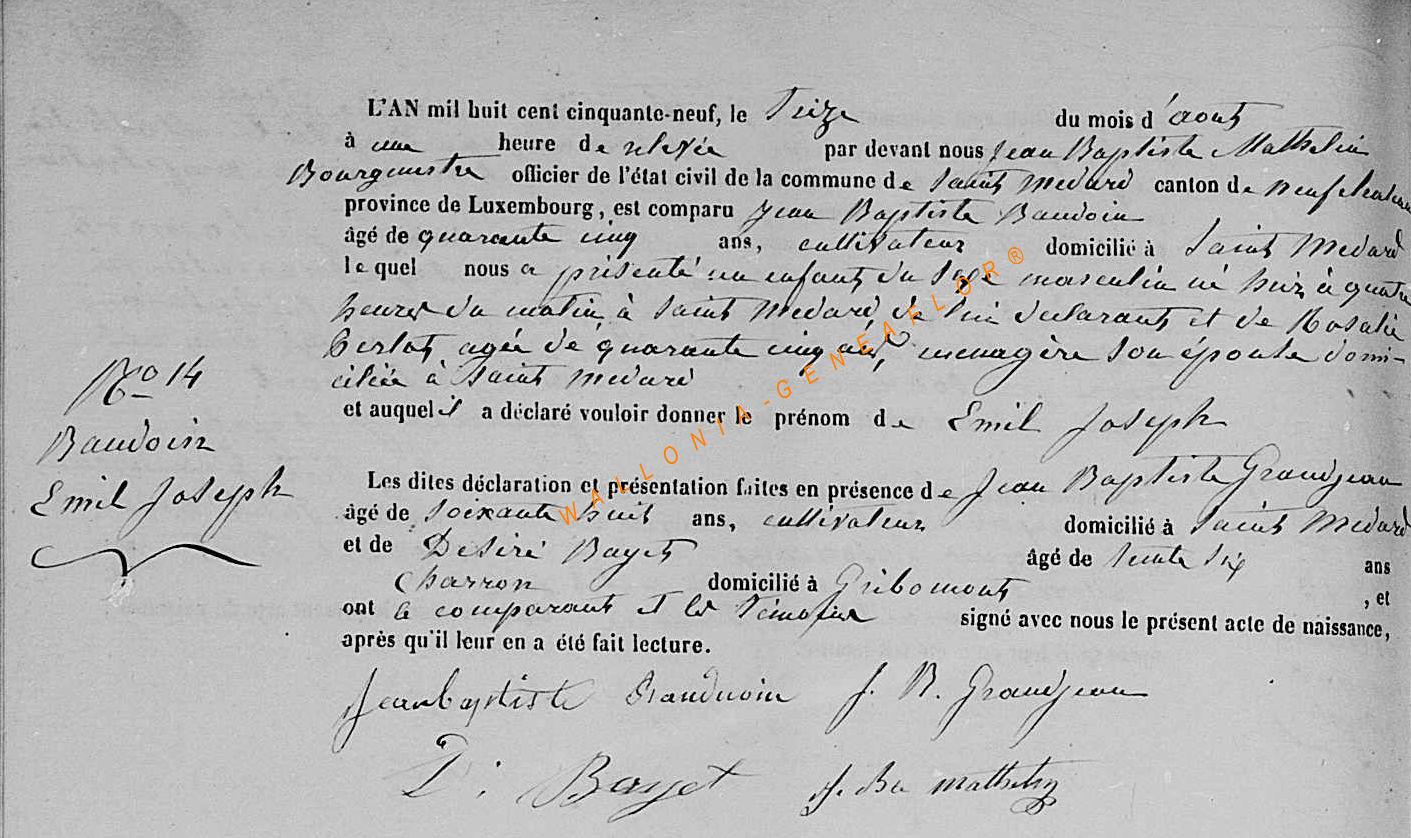 L'AN mil huit cent cinquante-neuf, le Treize du mois d'aout
à une heure de relevée par devant nous Jean Baptiste Mathelin
Bourgmestre officier de l'état civil de la commune de Saint Medard canton de neufchateau
province de Luxembourg, est comparu Jean Baptiste Baudoin
âgé de quarante cinq ans, cultivateur domicilié à Saint Medard
lequel nous a présenté un enfant du sexe masculin né hier à quatre
heures du matin à Saint Medard, de lui declarant et de Rosalie
agée de quarante cinq ans, menagère son épouse domi-
ciliée à Saint Medard
et auquel il a déclaré vouloir donner le prénom de Emil Joseph
No 14
Baudoin
Emil Joseph
Les dites déclaration et présentation faites en présence de Jean Baptiste Grandjean
âgé de Soixante huit ans, cultivateur domicilié à Saint Medard
et de Desiré Bayet âgé de trente six ans
Charron domicilié à Gribomont , et
ont le comparant et les témoins signé avec nous le présent acte de naissance,
après qu'il leur en a été fait lecture.
Jean baptiste J. B. Grandjean
D. Bayet J. Ba mathelin
WALLONIA-GENEAFLOR®